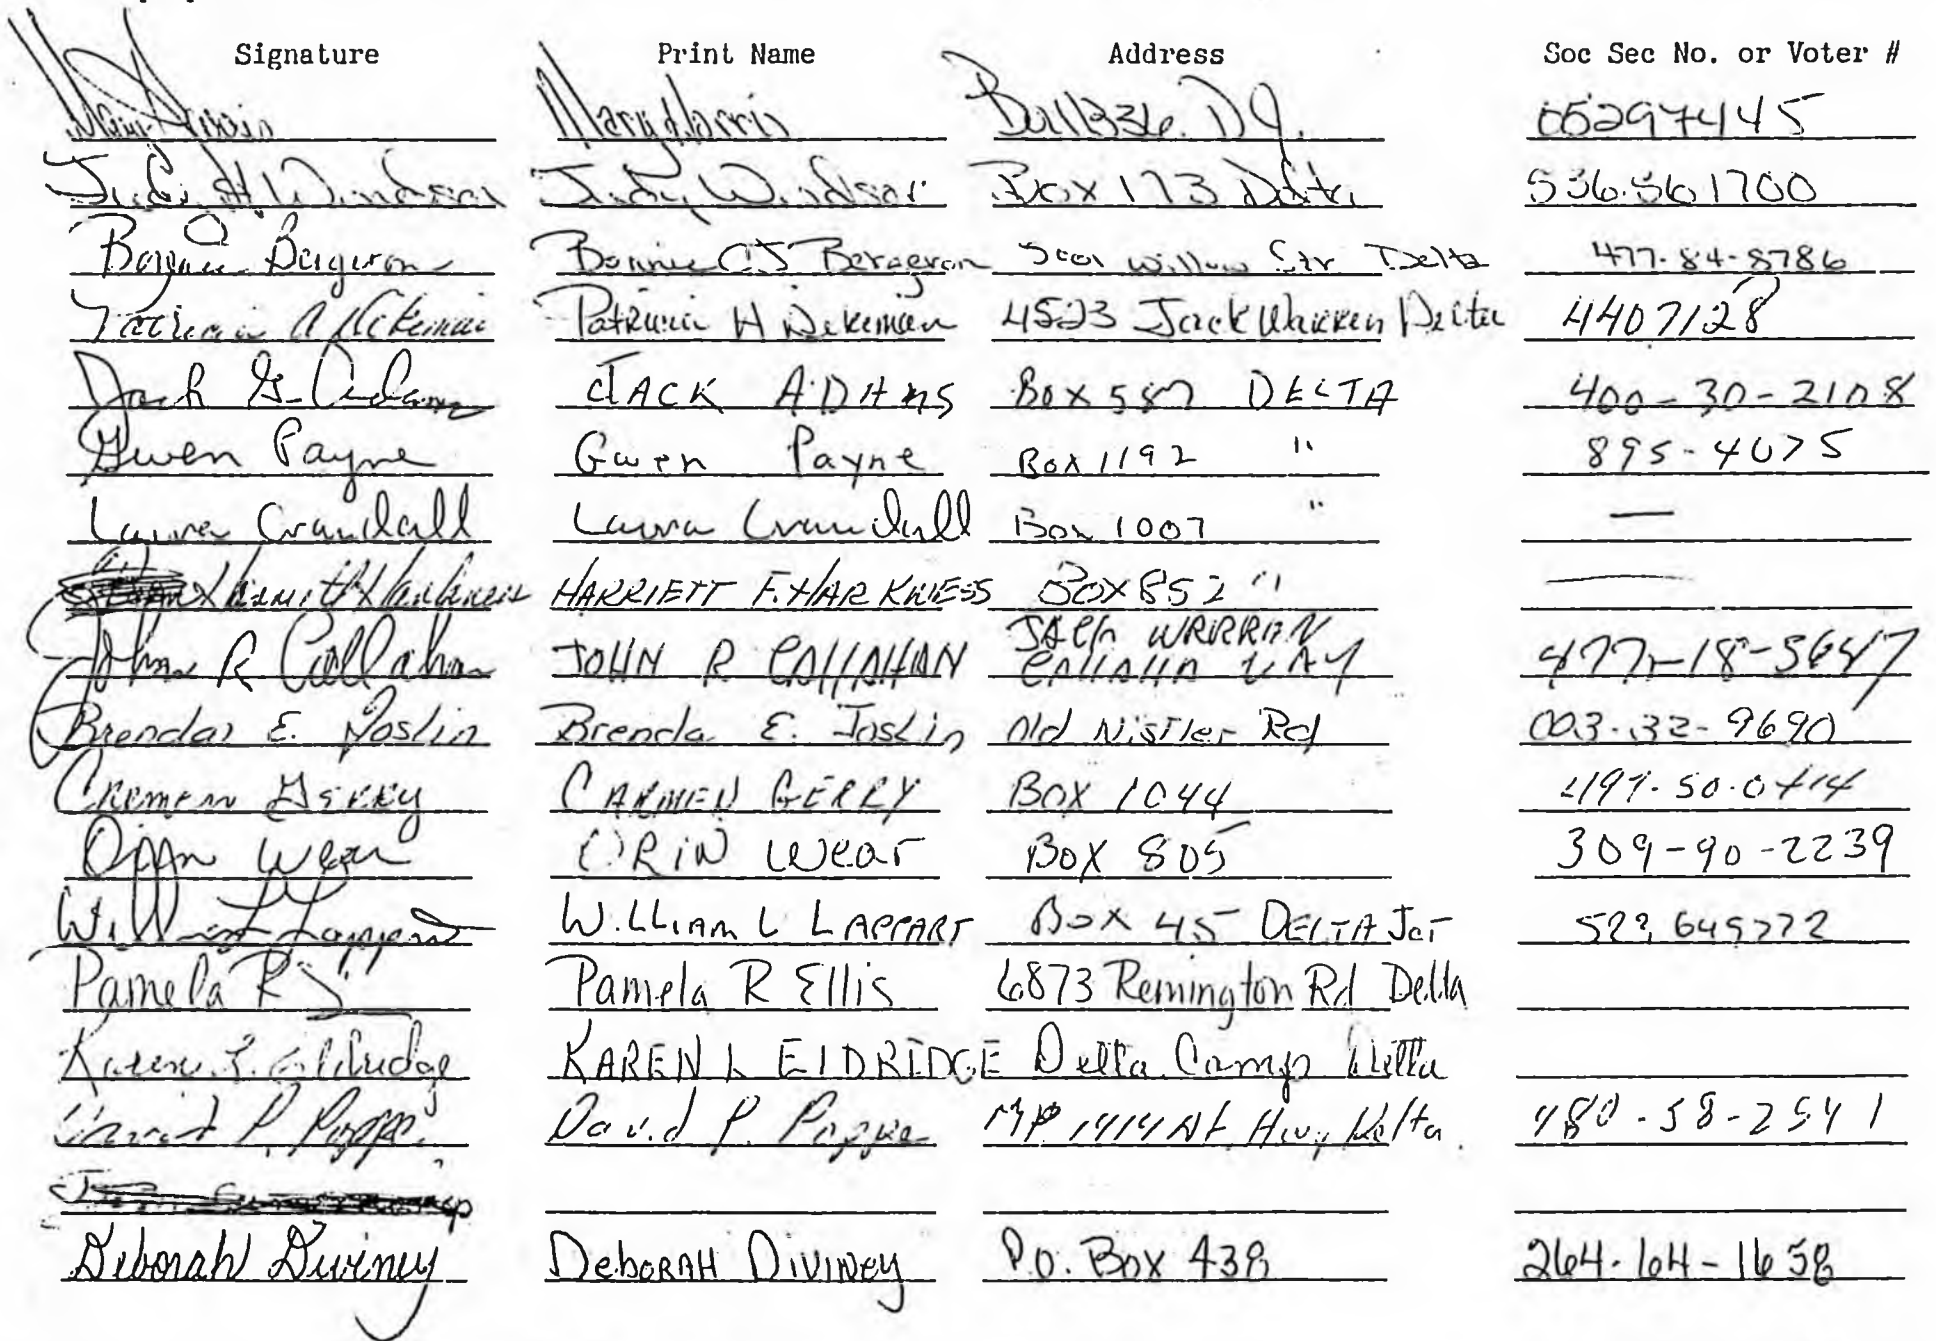 Signature Print Name Address Soc Sec No. or Voter #
Mary Harris Mary Harris D.J.
Judy H Windsor Judy Windsor Box 173 Delta
Bonnie Bergeron Bonnie CJ Bergeron Willow Delta 477-84-8786
Patricia A Patricia A 4523 Jack Warren Delta 4407128
Jack G. Adams JACK ADAMS Box 587 DELTA 400-30-2108
Gwen Payne Gwen Payne Box 1192 " 895-4075
Laura Crandall Laura Crandall Box 1007 " —
Harriett Harkness HARRIETT F. HARKNESS Box 852 " —
John R Callahan JOHN R CALLAHAN WARRAN
Brenda E. Joslin Brenda E. Joslin Old Nistler Rd 003-32-9690
Carmen Gerry CARMEN GERRY Box 1044
Orin Wear ORIN Wear Box 805 309-90-2239
William L Lappart WILLIAM L LAPPART Box 45 DELTA Jct
Pamela R Pamela R Ellis 6873 Remington Rd Delta
Karen L. Eldridge KAREN L ELDRIDGE Delta Camp Delta
David P. Poppe David P. Poppe MP 1414 Hwy Delta
Deborah Diviney DEBORAH DIVINEY P.O. Box 438 264-64-1658